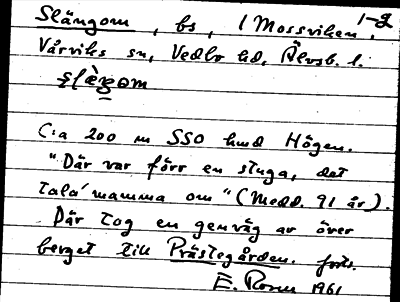 Slängom, bs, i Mossviken, 1-2
Vårviks sn, Vedbo hd, Älvsb. l.
C:a 200 m SSO hmd Högen.
"Där var förr en stuga, det
tala' mamma om" (Medd. 91 år).
Där tog en genväg av över
berget till Prästegården. forts.
E. Rosén 1961